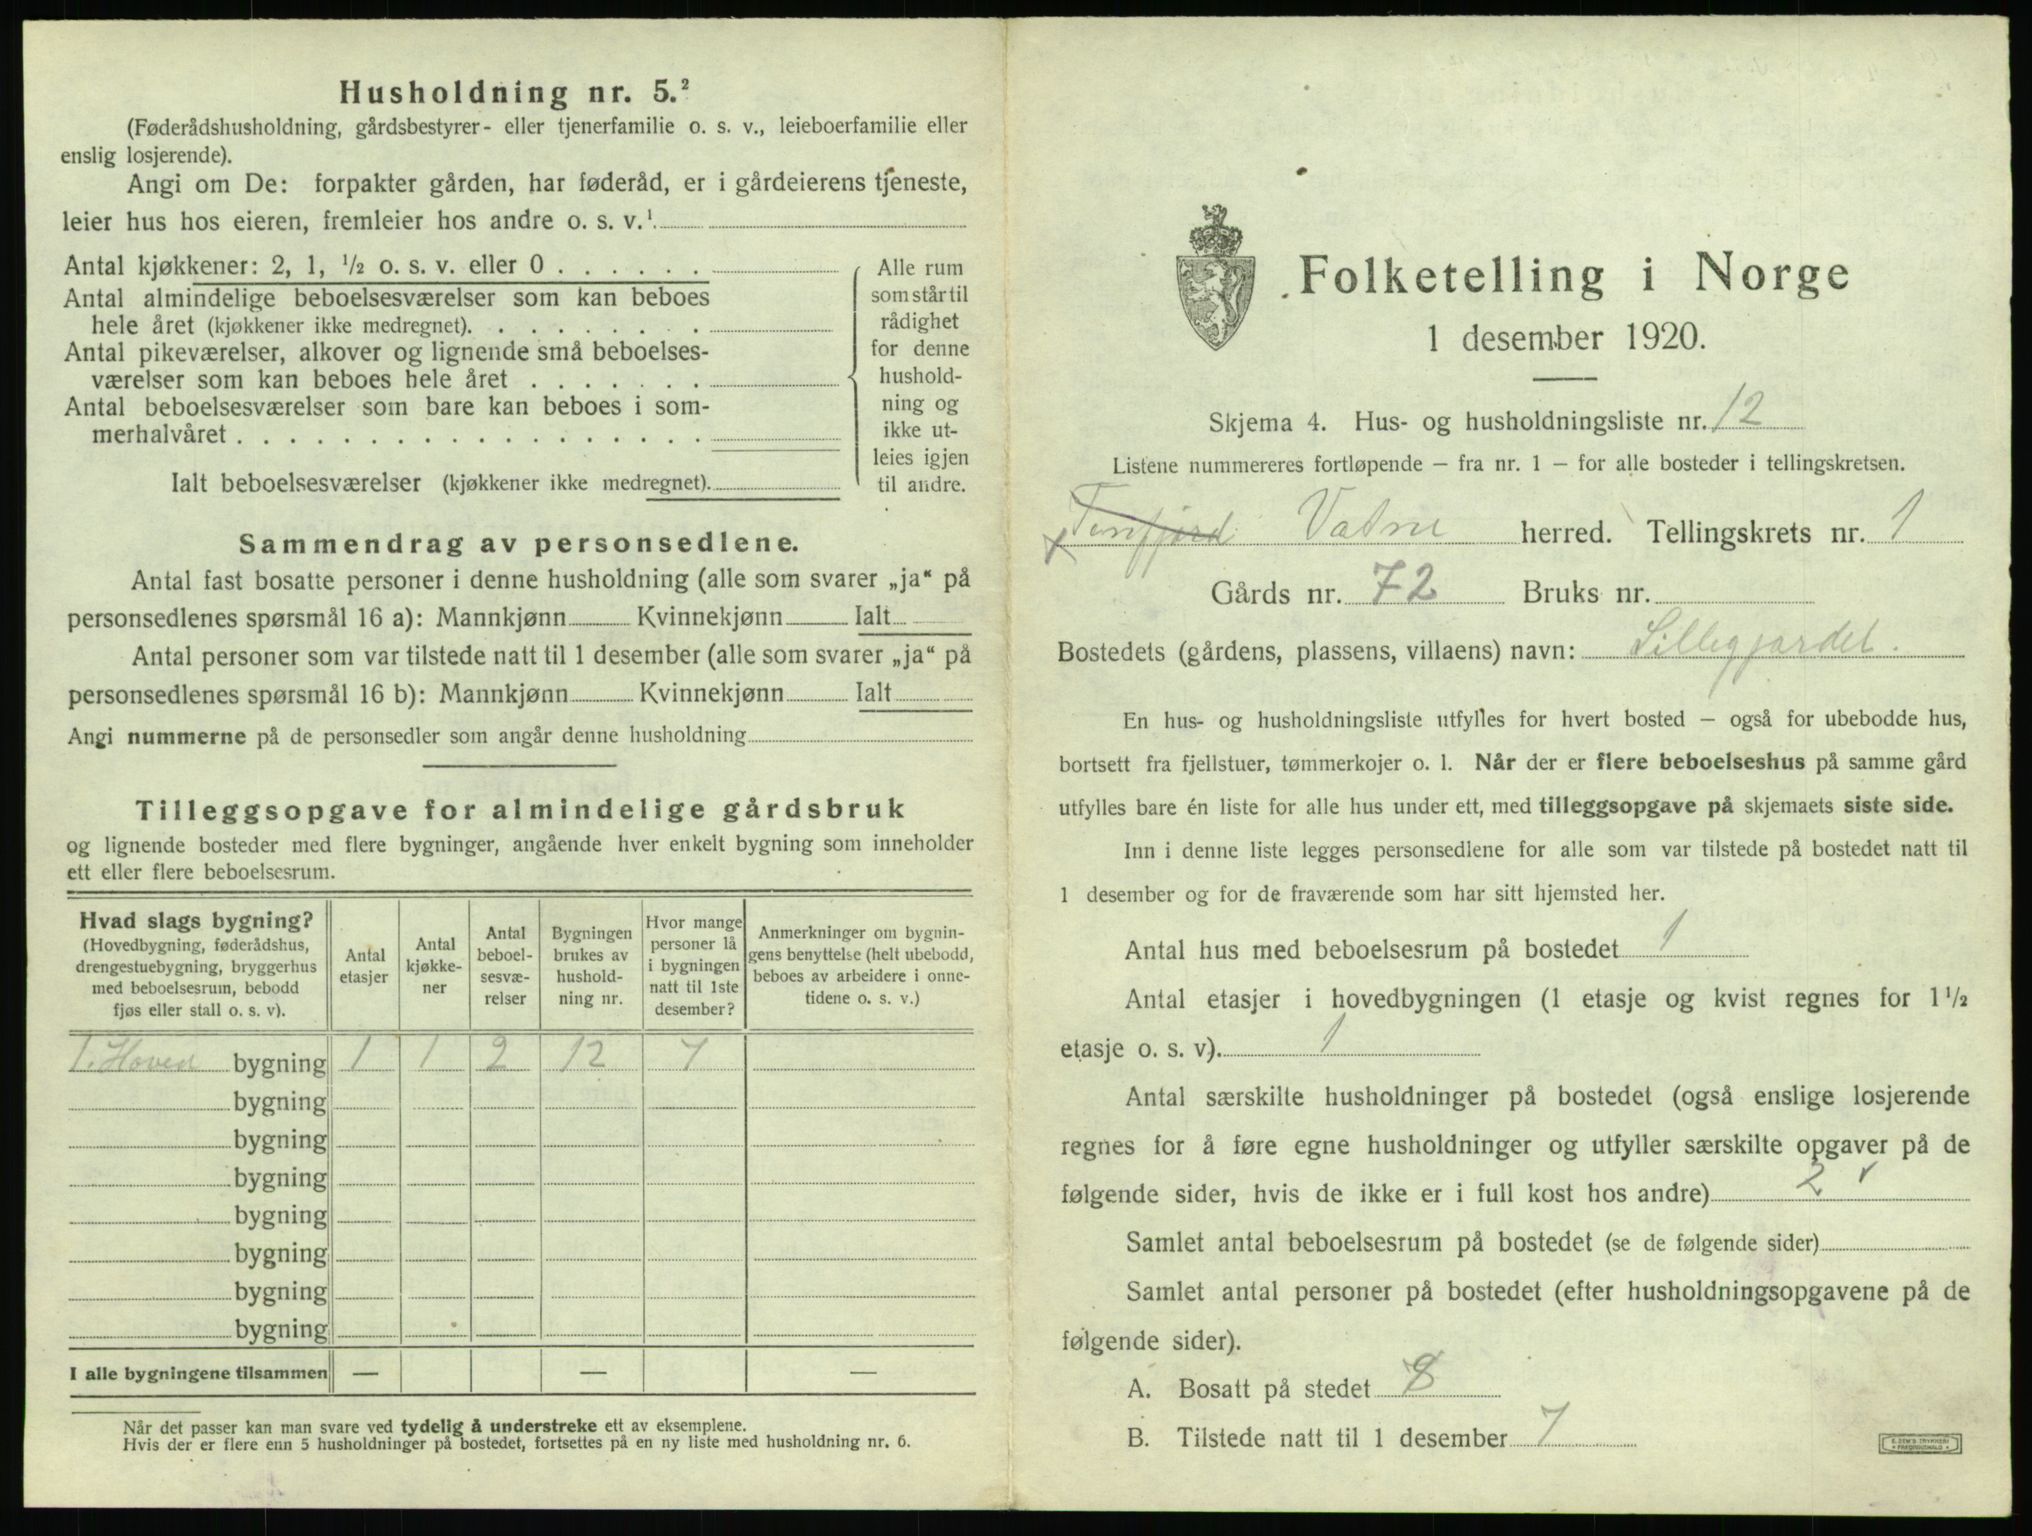 Husholdning nr. 5.²
(Føderådshusholdning, gårdsbestyrer- eller tjenerfamilie o. s. v., leieboerfamilie eller
enslig losjerende).
Angi om De: forpakter gården, har føderåd, er i gårdeierens tjeneste,
leier hus hos eieren, fremleier hos andre o. s. v.¹
Antal kjøkkener: 2, 1, ½ o. s. v. eller 0 . . . . . .
Antal almindelige beboelsesværelser som kan beboes
hele året (kjøkkener ikke medregnet). . . . . . . . .
Antal pikeværelser, alkover og lignende små beboelses-
værelser som kan beboes hele året . . . . . . .
Antal beboelsesværelser som bare kan beboes i som-
merhalvåret . . . . . . . . . . . . . . . . . .
Ialt beboelsesværelser (kjøkkener ikke medregnet).
Alle rum
som står til
rådighet
for denne
hushold-
ning og
ikke ut-
leies igjen
til andre.
Sammendrag av personsedlene.
Antal fast bosatte personer i denne husholdning (alle som svarer „ja“ på
personsedlenes spørsmål 16 a): Mannkjønn Kvinnekjønn Ialt
Antal personer som var tilstede natt til 1 desember (alle som svarer „ja“ på
personsedlenes spørsmål 16 b): Mannkjønn Kvinnekjønn Ialt
Angi nummerne på de personsedler som angår denne husholdning
Tilleggsopgave for almindelige gårdsbruk
og lignende bosteder med flere bygninger, angående hver enkelt bygning som inneholder
ett eller flere beboelsesrum.
Hvad slags bygning?
(Hovedbygning, føderådshus,
drengestuebygning, bryggerhus
med beboelsesrum, bebodd
fjøs eller stall o. s. v).
Antal
etasjer
Antal
kjøkke-
ner
Antal
beboel-
sesvæ-
relser
Bygningen
brukes av
hushold-
ning nr.
Hvor mange
personer lå
i bygningen
natt til 1ste
desember?
Anmerkninger om bygnin-
gens benyttelse (helt ubebodd,
beboes av arbeidere i onne-
tidene o. s. v.)
1. Hoved bygning 1 1 2 12 7
bygning
bygning
bygning
bygning
bygning
bygning
bygning
I alle bygningene tilsammen — — —
Når det passer kan man svare ved tydelig å understreke ett av eksemplene.
Hvis der er flere enn 5 husholdninger på bostedet, fortsettes på en ny liste med husholdning nr. 6.
Folketelling i Norge
1 desember 1920.
Skjema 4. Hus- og husholdningsliste nr. 12
Listene nummereres fortløpende – fra nr. 1 – for alle bosteder i tellingskretsen.
x Tenfjord Vatne herred. Tellingskrets nr. 1
Gårds nr. 72 Bruks nr.
Bostedets (gårdens, plassens, villaens) navn: Lillegjardet.
En hus- og husholdningsliste utfylles for hvert bosted – også for ubebodde hus,
bortsett fra fjellstuer, tømmerkojer o. l. Når der er flere beboelseshus på samme gård
utfylles bare én liste for alle hus under ett, med tilleggsopgave på skjemaets siste side.
Inn i denne liste legges personsedlene for alle som var tilstede på bostedet natt til
1 desember og for de fraværende som har sitt hjemsted her.
Antal hus med beboelsesrum på bostedet 1
Antal etasjer i hovedbygningen (1 etasje og kvist regnes for 1½
etasje o. s. v). 1
Antal særskilte husholdninger på bostedet (også enslige losjerende
regnes for å føre egne husholdninger og utfyller særskilte opgaver på de
følgende sider, hvis de ikke er i full kost hos andre) 2
Samlet antal beboelsesrum på bostedet (se de følgende sider)
Samlet antal personer på bostedet (efter husholdningsopgavene på de
følgende sider).
A. Bosatt på stedet 8
B. Tilstede natt til 1 desember 7